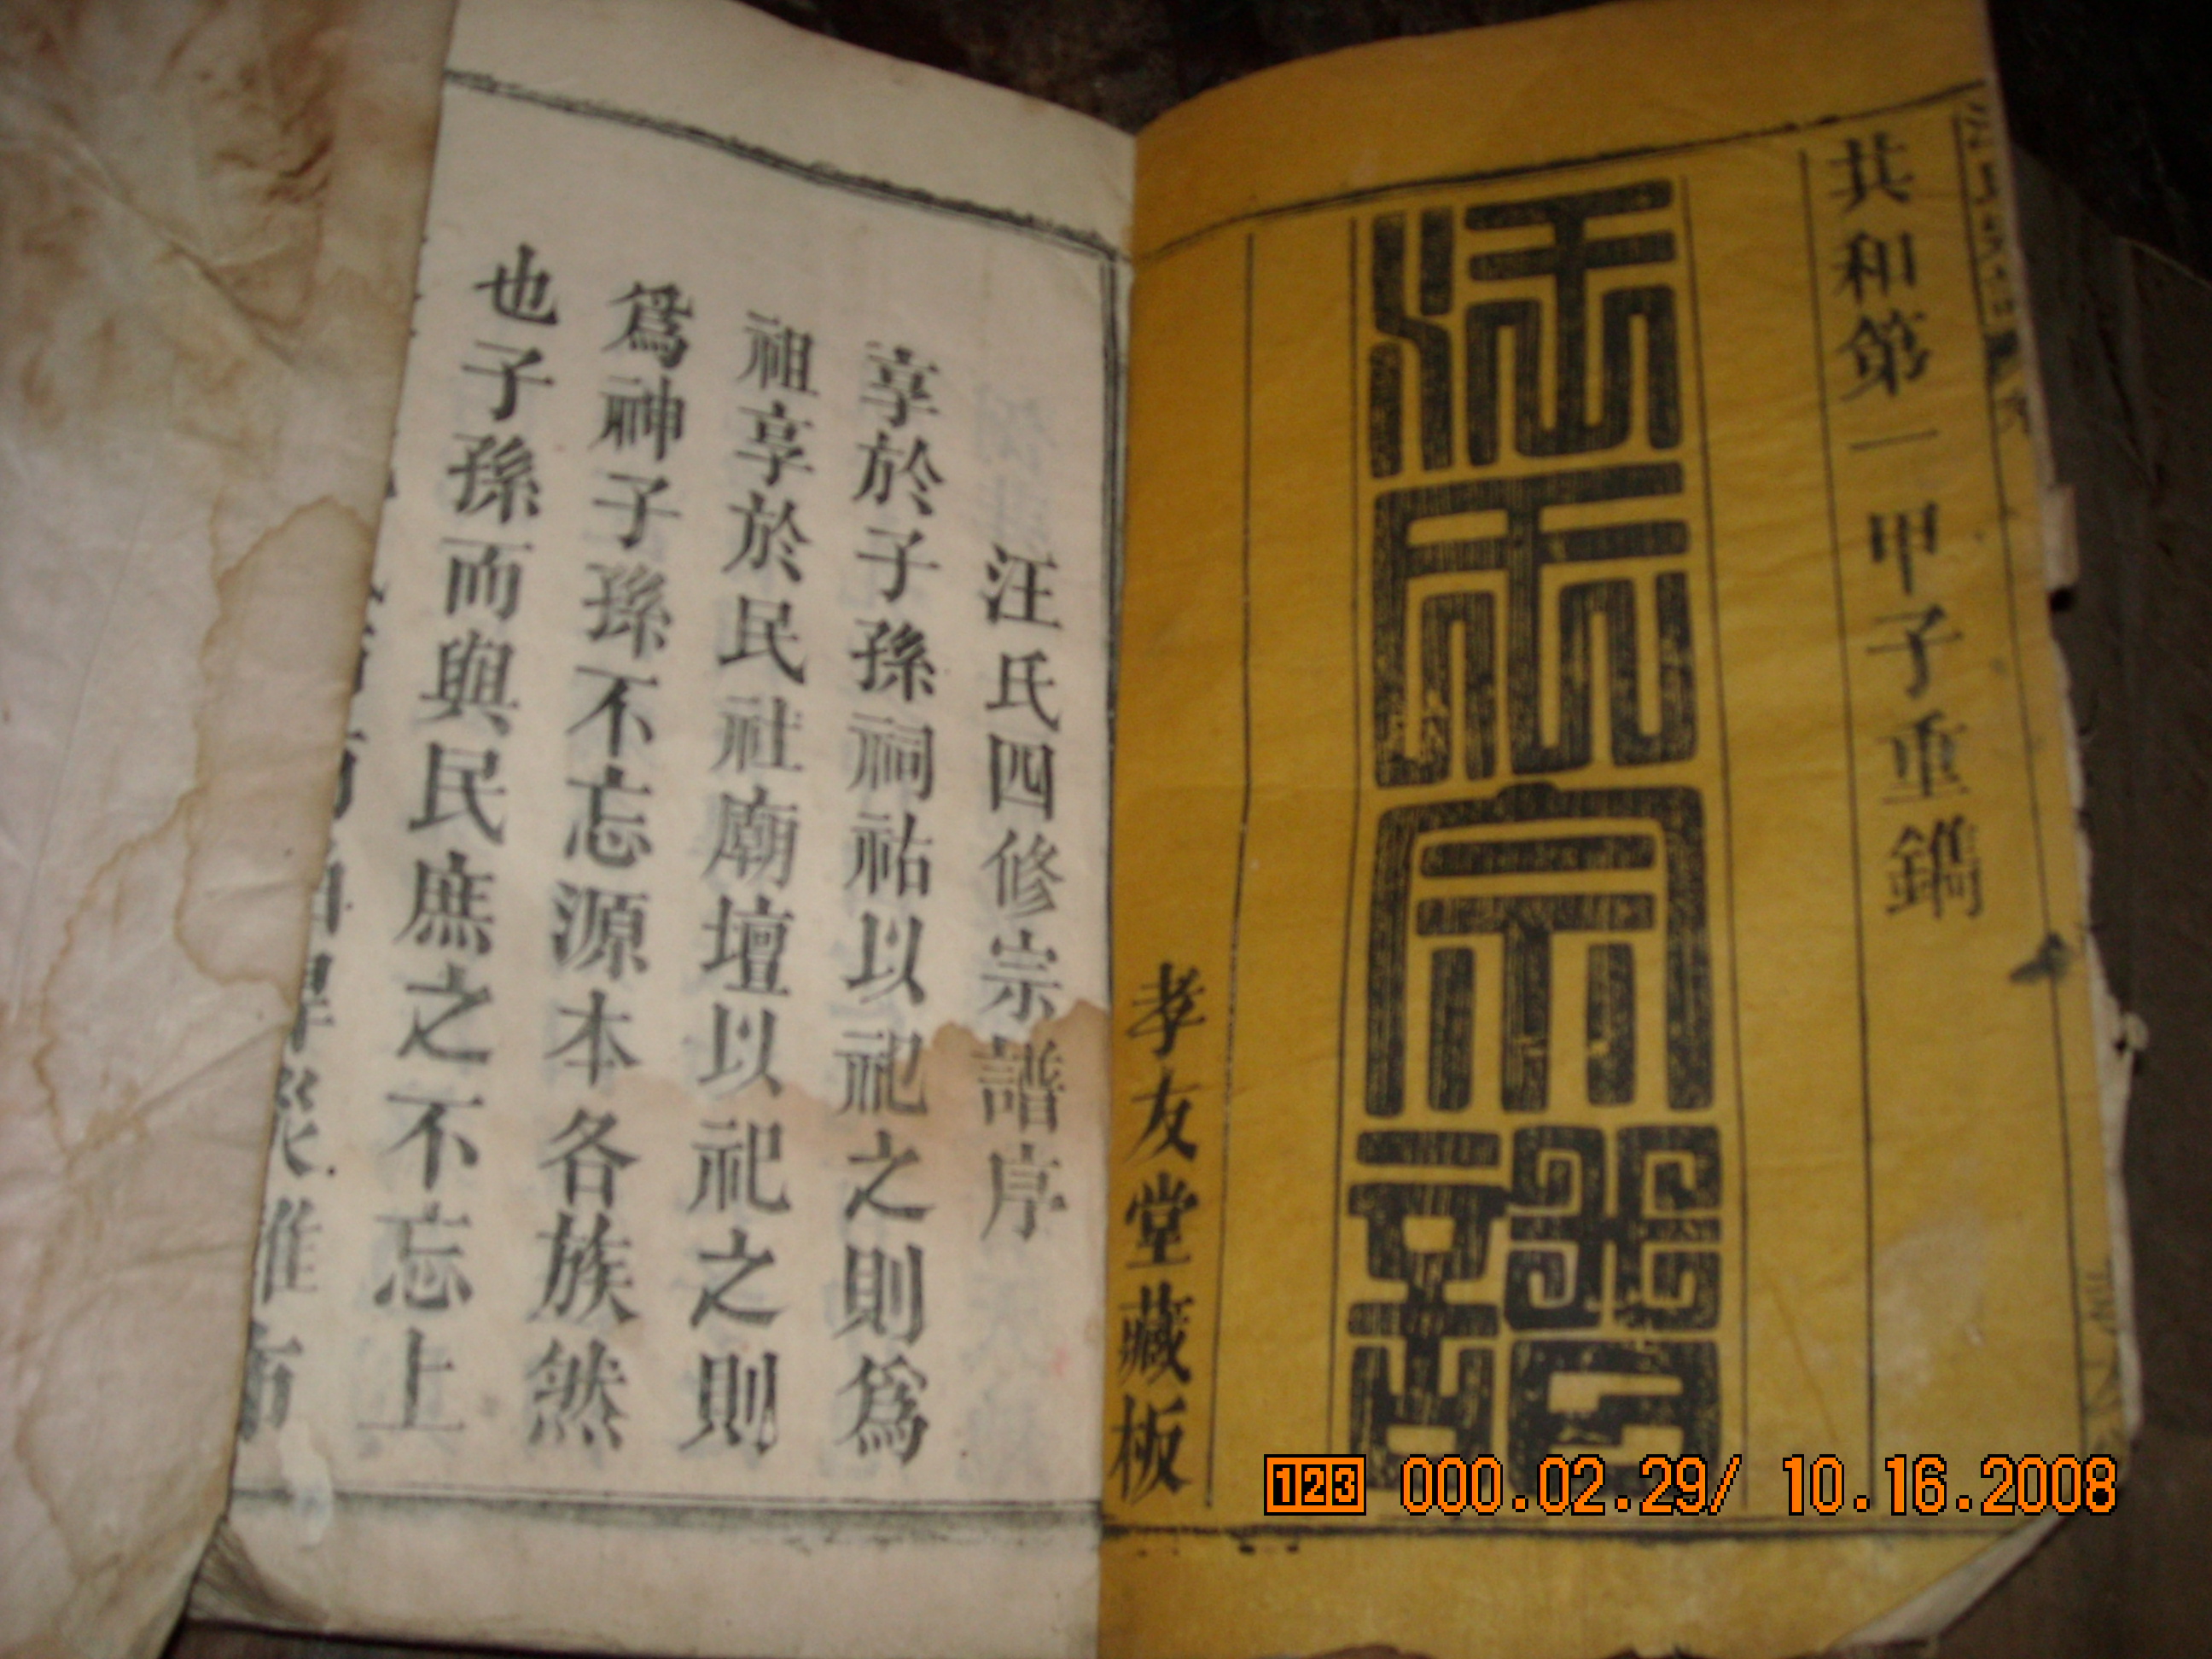 共和第一甲子重鐫
汪氏宗譜
孝友堂藏板
汪氏四修宗譜序
享於子孫祠祜以祀之則爲
祖享於民社廟壇以祀之則
爲神子孫不忘源本各族然
也子孫而與民庶之不忘上
123 000.02.29/ 10.16.2008